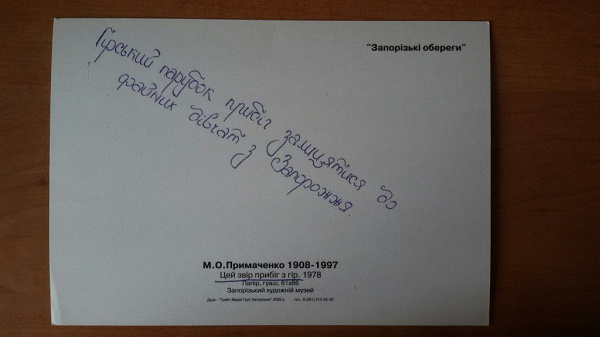 "Запорізькі обереги"
Гірський парубок прибіг залицятися до
файних дівчат з Запоріжжя.
М.О.Примаченко 1908-1997
Цей звір прибіг з гір. 1978
Папір, гуаш, 61х86
Запорізький художній музей